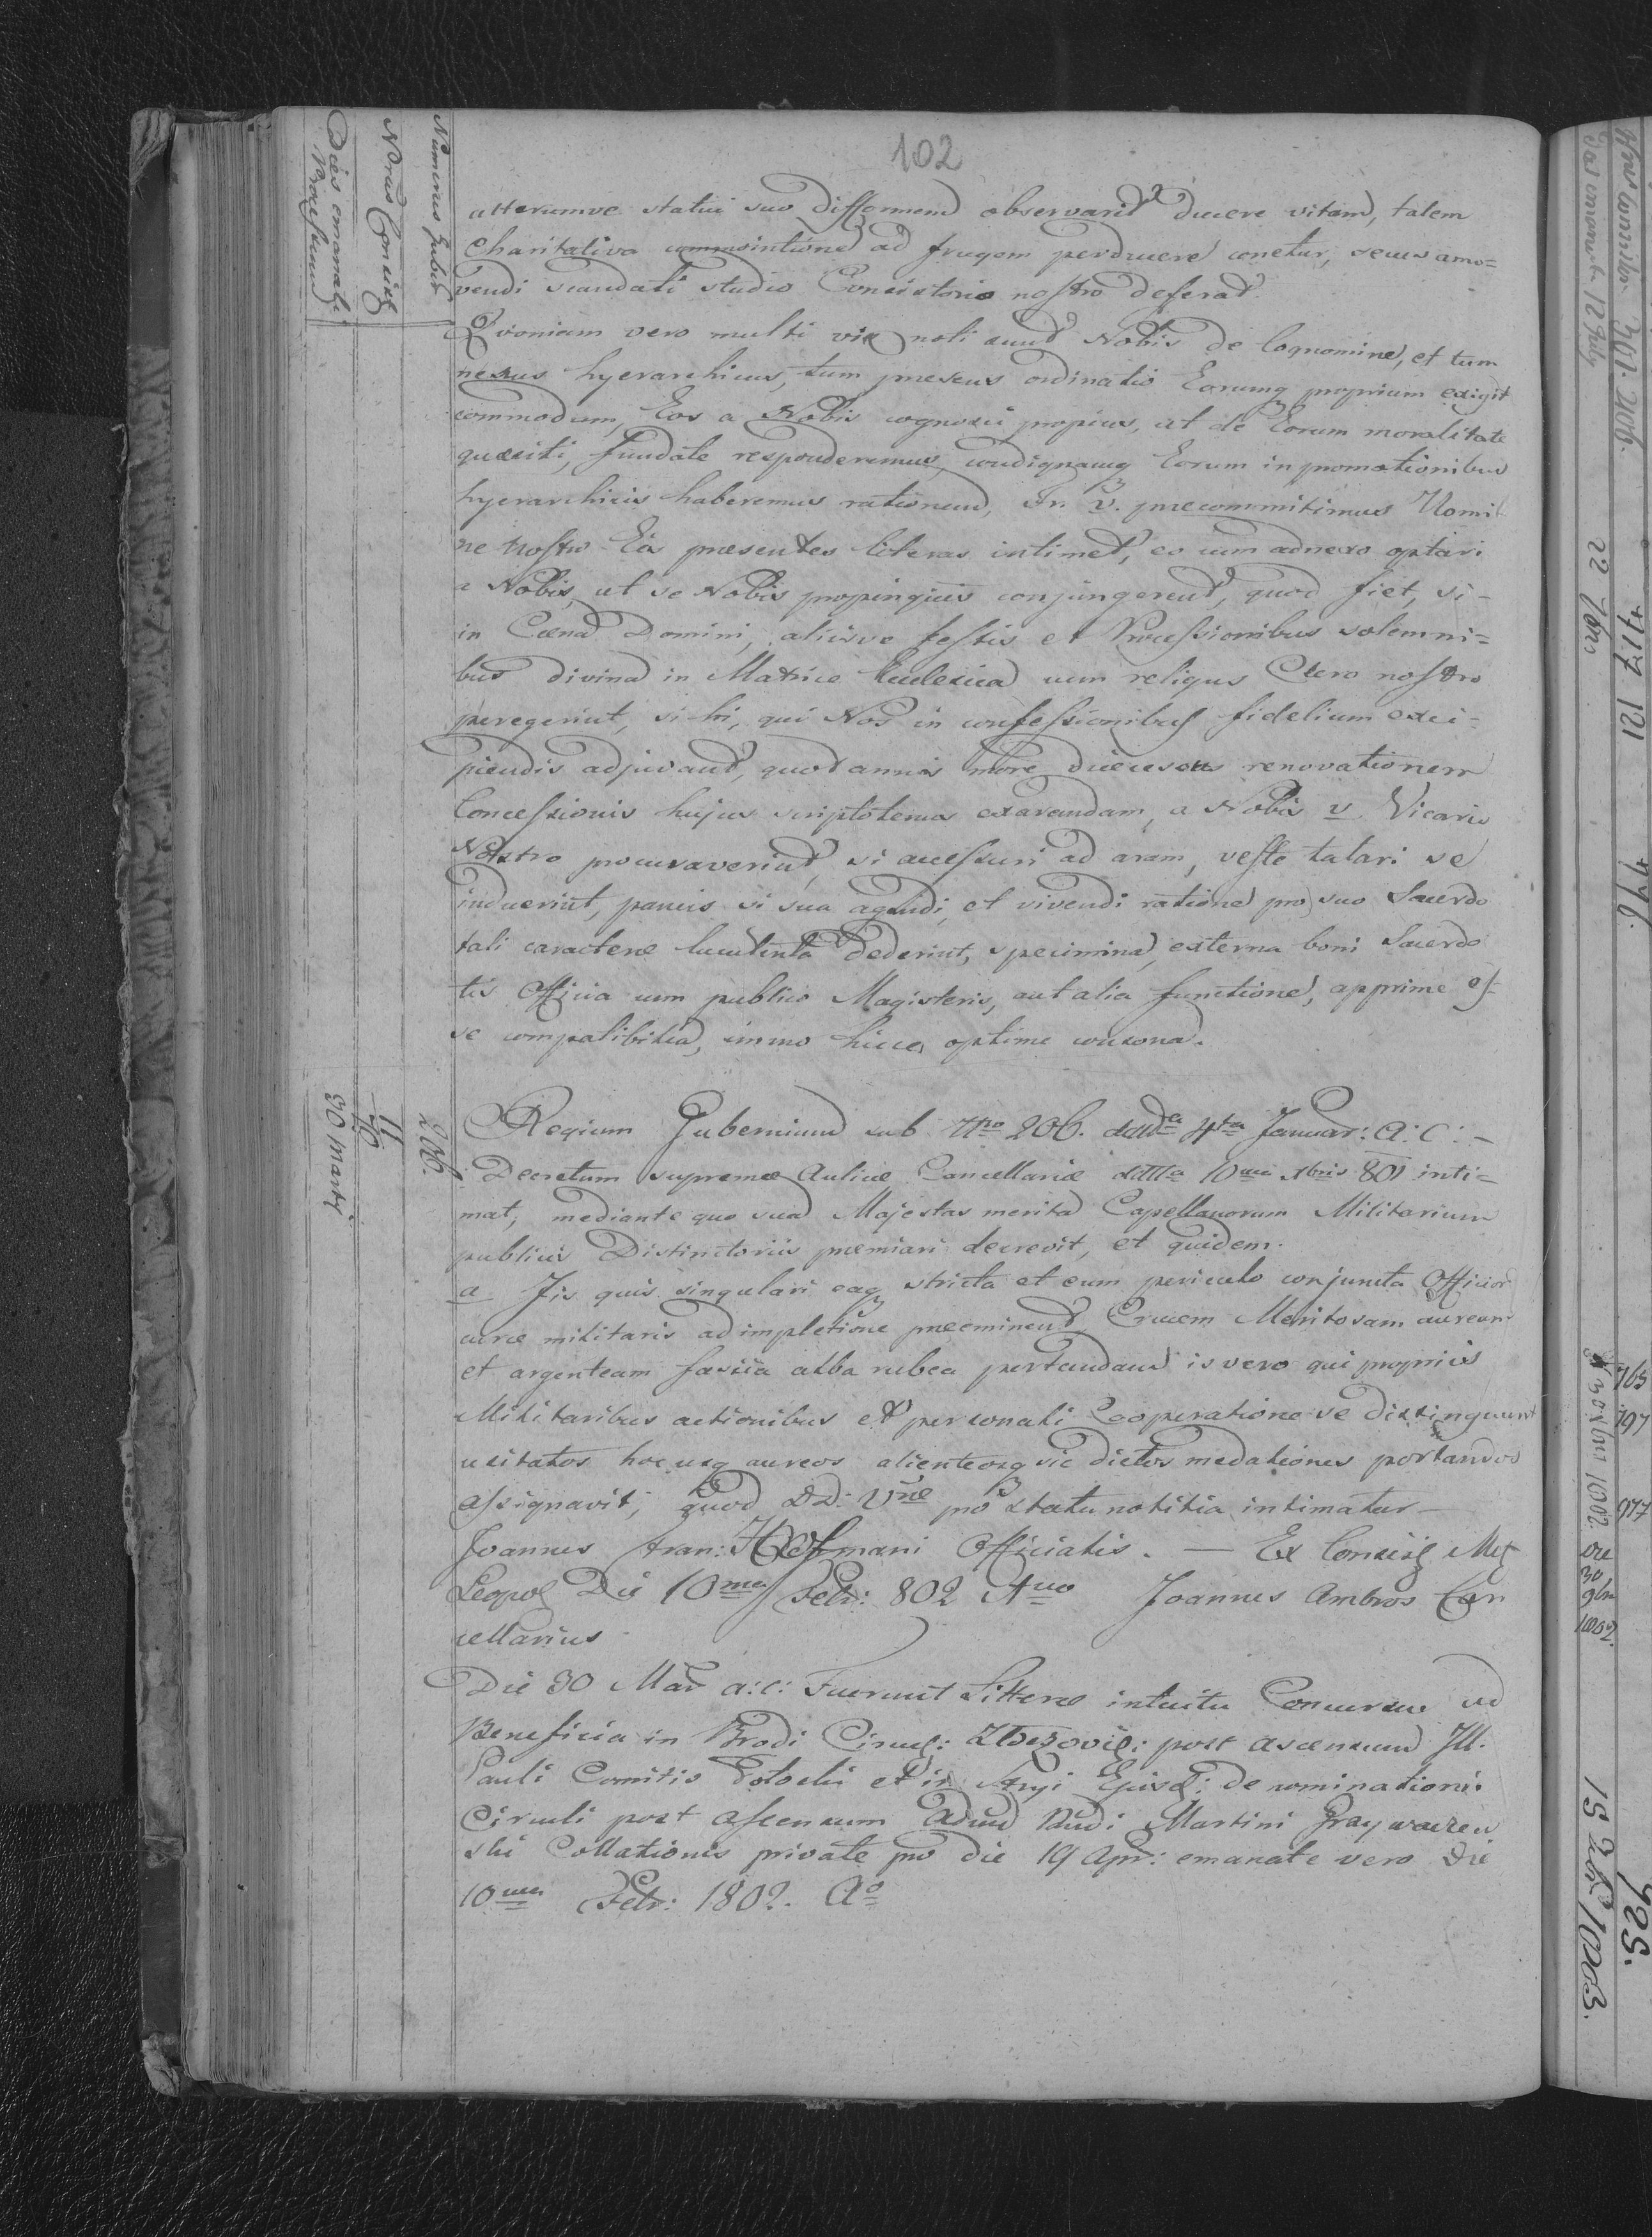 102
Numerus Guber
Nrus Consist
Dies emanati
Processum
atterumve statui suo difformem observarit ducere vitam, talem
Charitativa commonitione ad frugem perducere conetur, secus amo=
vendi scandali studio Consistorio nostro deferat.
Qvoniam vero multi vix noti sunt Nobis de Cognomine, et tum
nexus hyerarchicus, tum praesens ordinatio Eorumq proprium exigit
commodum, Eos a Nobis cognosci propius, ut de Eorum moralitate
quaesiti, fundate responderemus, condignamq Eorum in promotionibus
hyerarchicis haberemus rationem, Dr. V. praecommitimus Nomi
ne nostro Eis praesentes literas intimet, eo cum adnexo optari
a Nobis, ut se Nobis propinquius conjungerent, quod fiet, si-
in Caena Domini, aliisve festis et Processionibus solemni=
bus divina in Matrice Ecclesia cum reliquo Clero nostro
peregerint, si hi, qui Nos in confessionibus fidelium exci=
piendis adjuvant, quotannis more dioecesano renovationem
Concessionis hujus scriptotenus exarandam, a Nobis v Vicario
Nostro procuraverint, si accessuri ad aram, veste talari se
induerint, paucis si sua agendi, et vivendi ratione pro suo Sacerdo
tali caractere luculenta dederint, specimina, externa boni Sacerdo
tis Officia cum publico Magisterio, aut alia functione, apprime es=
se compatibilia, immo hicce optime consona.
206.
11
30 Martij
Regium Gubernium sub Nro 206. ddto 4ta Januar: A: C: -
Decretum supremae Aulicae Cancellariae ddto 10ma Xbris 801 inti=
mat, mediante quo sua Majestas merita Capellanorum Militarium
publicis Distinctoriis praemiari decrevit, et quidem.
a Iis quis singulari eaq stricta et cum periculo conjuncta Officior
curae militaris adimpletione praeminent, Crucem Meritosam auream
et argenteam fascia alba rubea portandam is vero qui propriis
Militaribus actionibus et personali Cooperatione se distinguunt
usitatos hocusq aureos alienteosq sic dictos medaliones portandos
assignavit, quod DD: Vrae pro statu notitia intimatur —
Joannes Fran: Hofmani Officialis. — Ex Consist Met
Leopol Die 10ma Febr: 802 Anno Joannes Ambros Can
cellarius
Die 30 Mar a: c: Fuerunt Litterae intuitu Concursus ad
Beneficia in Brodi Circul: Zloczovien: post ascensum Ill.
Pauli Comitis Potocki et in Stryi Ejusd: de nominationis
Circuli post ascensum Admd Rndi Martini
ski Collationis privatae pro die 19 Apr: emanatae vero Die
10ma Febr: 1802. Ao
12 July
22 7bris
121
765
797
977
die
30
9br
1802.
15 Xbr 1803.
925.